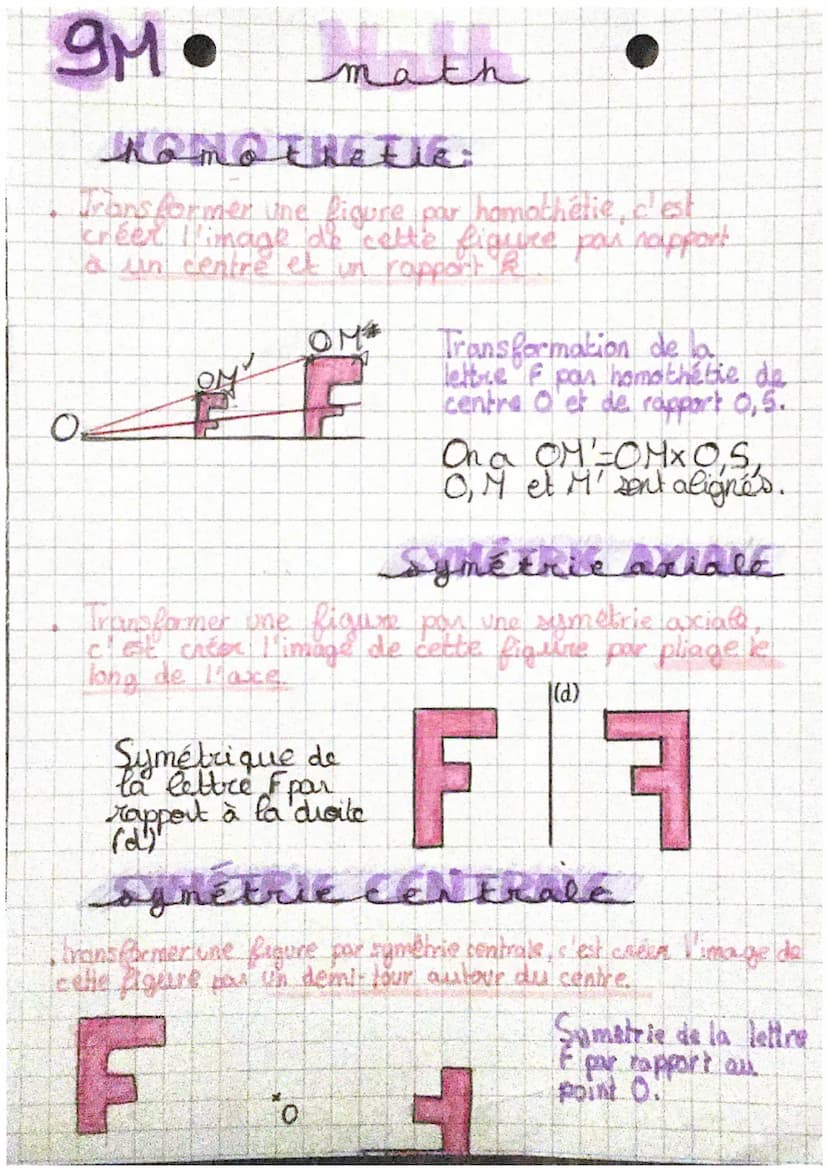 9M
math
Homothetie:
. Transformer une figure par homothétie, c'est
créer l'image de cette figure par rapport
à un centre et un rapport k.
OM'
OM
O
Transformation de la
lettre F par homothétie de
centre O et de rapport 0,5.
On a OM'=OMx0,5,
O, M et M' sont alignés.
symétrie axiale
. Transformer une figure par une symétrie axiale,
c'est créer l'image de cette figure par pliage le
long de l'axe.
(d)
Symétrique de
la lettre F par
rapport à la droite
(d)
symétrie centrale
. transformer une figure par symétrie centrale, c'est créer l'image de
cette figure par un demi-tour autour du centre.
Symétrie de la lettre
F par rapport au
point O.
O